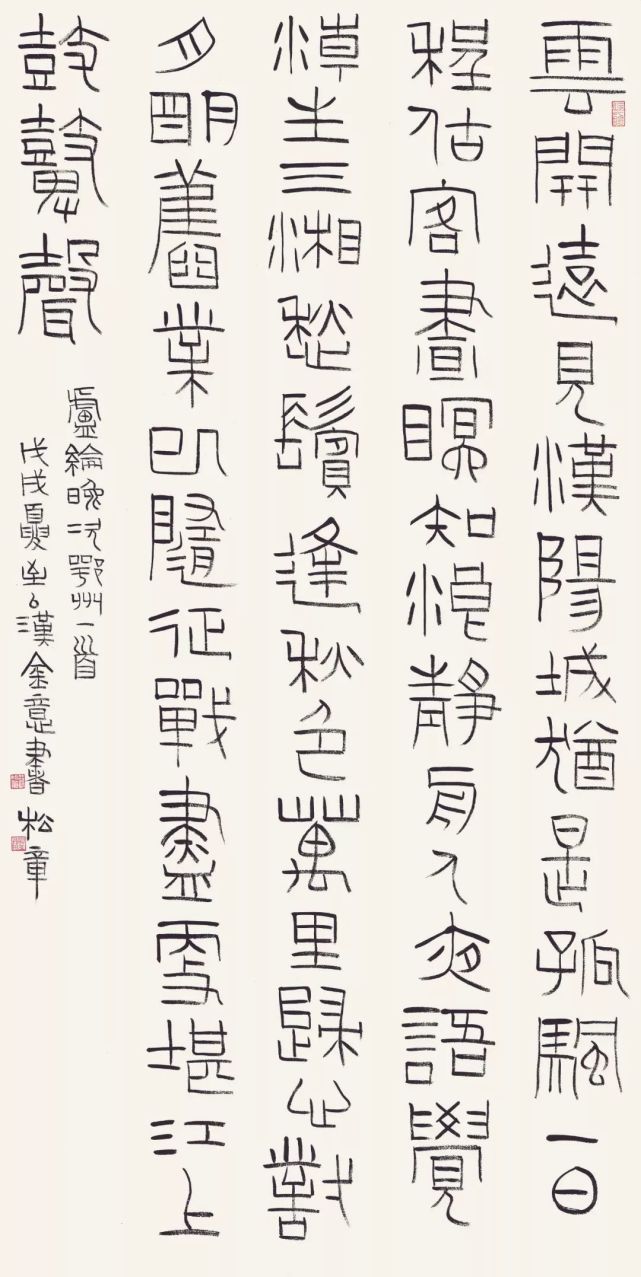 雲開遠見漢陽城猶是孤颿一日
程估客晝瞑知浪靜舟人夜語覺
潮生三湘愁鬢逢秋色萬里歸心對
月朙舊業已隨征戰盡更堪江上
鼓鼙聲
盧綸晚次鄂州一首
戊戌夏至以漢金意書 松章